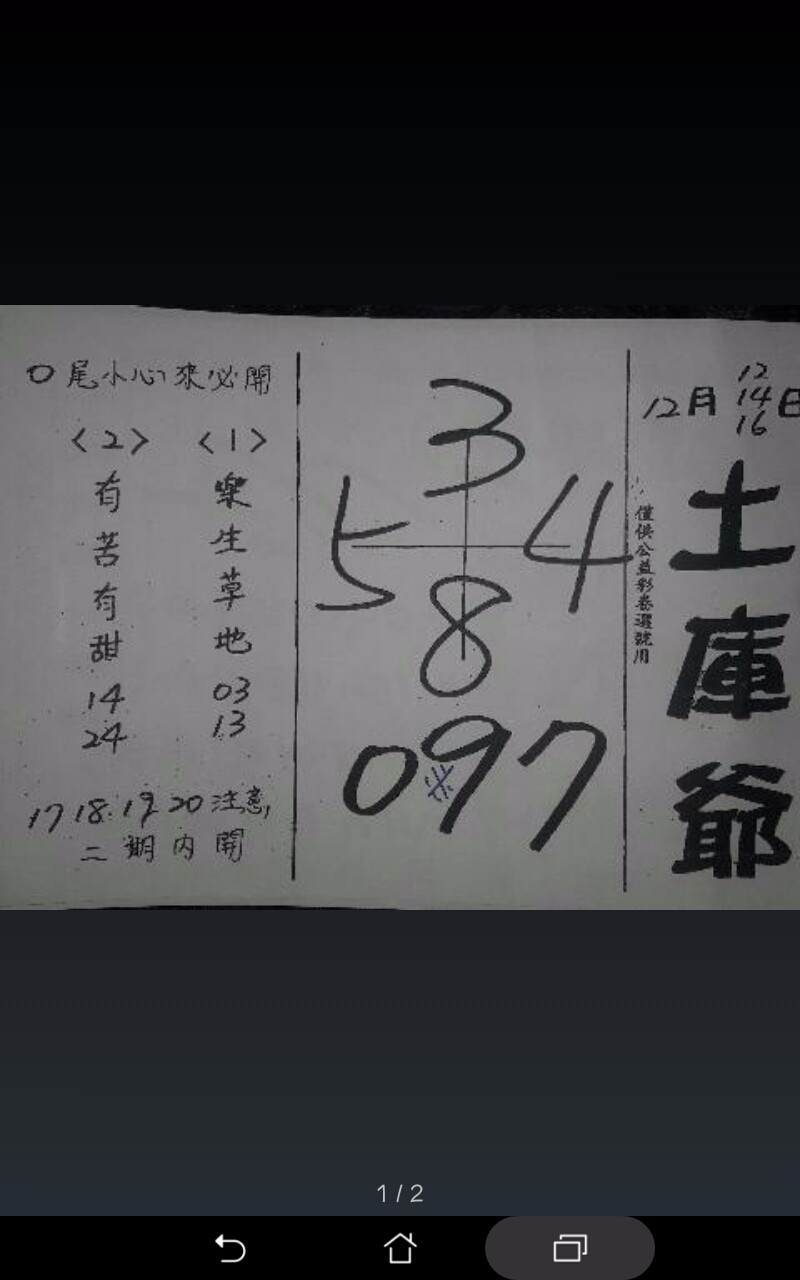 12月 12 14 16日
土庫爺
僅供公益彩卷選號用
3
5 4
8
097
0尾小心來必開
〈1〉
樂生草地
03
13
〈2〉
有苦有甜
14
24
17 18. 19. 20 注意,
二期内開
1/2